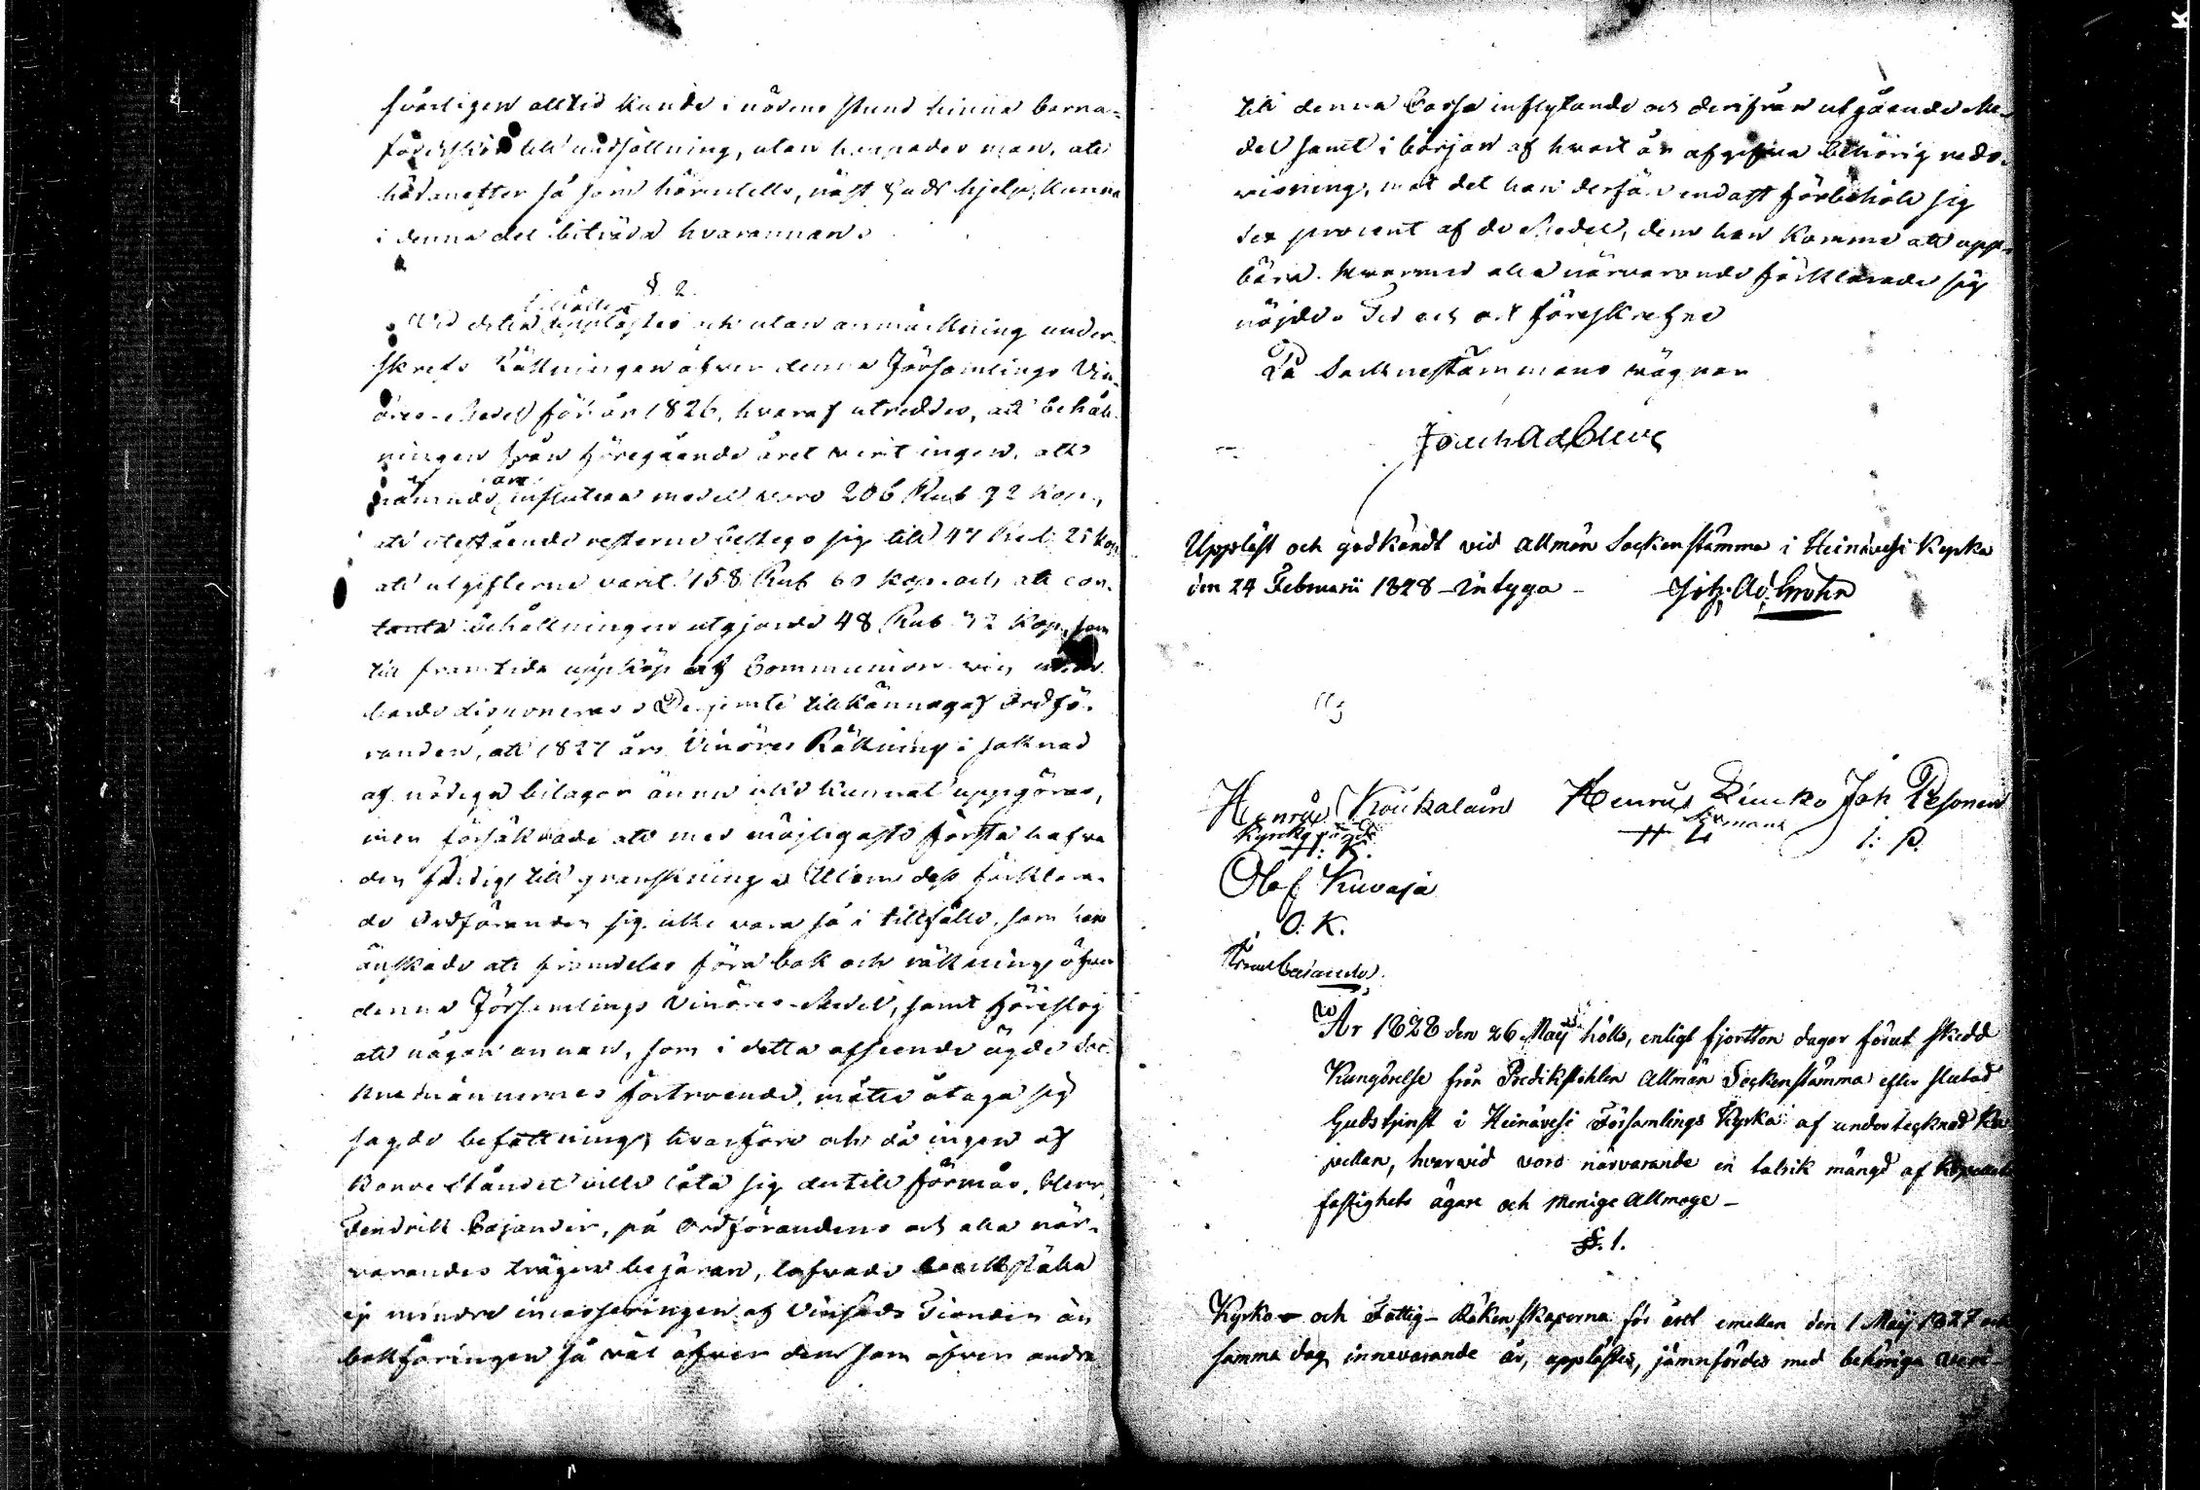 svårligen alltid kunde i nödens stund hinna barna-
föderskor till undsättning, utan hoppades man, att
hädanefter så som härintills, näst Guds hjelp, kunna
i denna del biträda hvarannan.
§. 2.
tillfälle
Vid detta upplästes och utan anmärkning under-
skrefs Räkningen öfver denna Församlings Vin-
öres-Medel för år 1826, hvaraf utreddes, att behåll-
ningen från föregående året varit ingen, att
års
nämnde influtna medel voro 206 Rub 92 kop.,
att utestående resterne bestego sig till 47 Rub. 25 kop
att utgifterne varit 158 Rub 60 kop. och att con-
tanta behållningen utgjorde 48 Rub 32 kop, som
till framtida uppköp af Communion vin
disponeras. Derjemte tillkännagaf Ordfö-
randen, att 1827 års Vinöres Räkning i saknad
af nödiga bilagor ännu icke kunnat uppgöras,
men försäkrade att med möjligaste första hafva
den färdig till granskning. Utom dess förklara-
de Ordföranden sig icke vara så i tillfälle, som han
önskade att framdeles föra bok och räkning öfver
denna Församlings Vinöres-Medel, samt föreslog
att någon annan, som i detta afseende ägde Soc-
knemännernes förtroende, måtte åtaga sig
sagde befattning, hvarföre och då ingen af
Bonde Ståndet ville låta sig dertill förmås, Herr
Fendrik Cajander, på Ordförandens och alla när-
varandes trägna begäran, lofvade verkställa
ej mindre incasseringen af Vinsäds Tionden än
bokföringen så väl öfver dem som öfver andra
till denna Cassa inflytande och derifrån utgående Me-
del samt i början af hvart år afgifva behörig redo-
visning, mot det han derför endast förbehöll sig
sex procent af de Medel, dem han komme att upp-
bära. hvarmed alla närvarande förklarade sig
nöjde. Tid och ort föreskrefne
På Socknestämmans vägnar
Joach Ad Cleve
Uppläst och godkändt vid allmän Sockenstämma i Heinävesi Kyrka
den 24 Februarii 1828 - Intyga - Joh: Ad: Grohn
Henrik Koukalain Henrik Rimko Joh Pesonen
Kyrkovärd
H: K. H L I: P.
Olof Kuvaja
O. K.
Cajander.
År 1828 den 26 Maij hölls, enligt fjortton dagar förut skedd
Kungörelse från Predikstohlen Allmän Sockenstämma efter slutad
Gudstjenst i Heinävesi Församlings Kyrka af undertecknad Ka-
pellan, hvarvid voro närvarande en talrik mängd af
fastighets ägare och menige Allmoge -
§. 1.
Kyrko- och Fattig-Räkenskaperna för året emellan den 1 Maij 1827 och
samma dag innevarande år, upplästes, jämnfördes med behöriga veri-